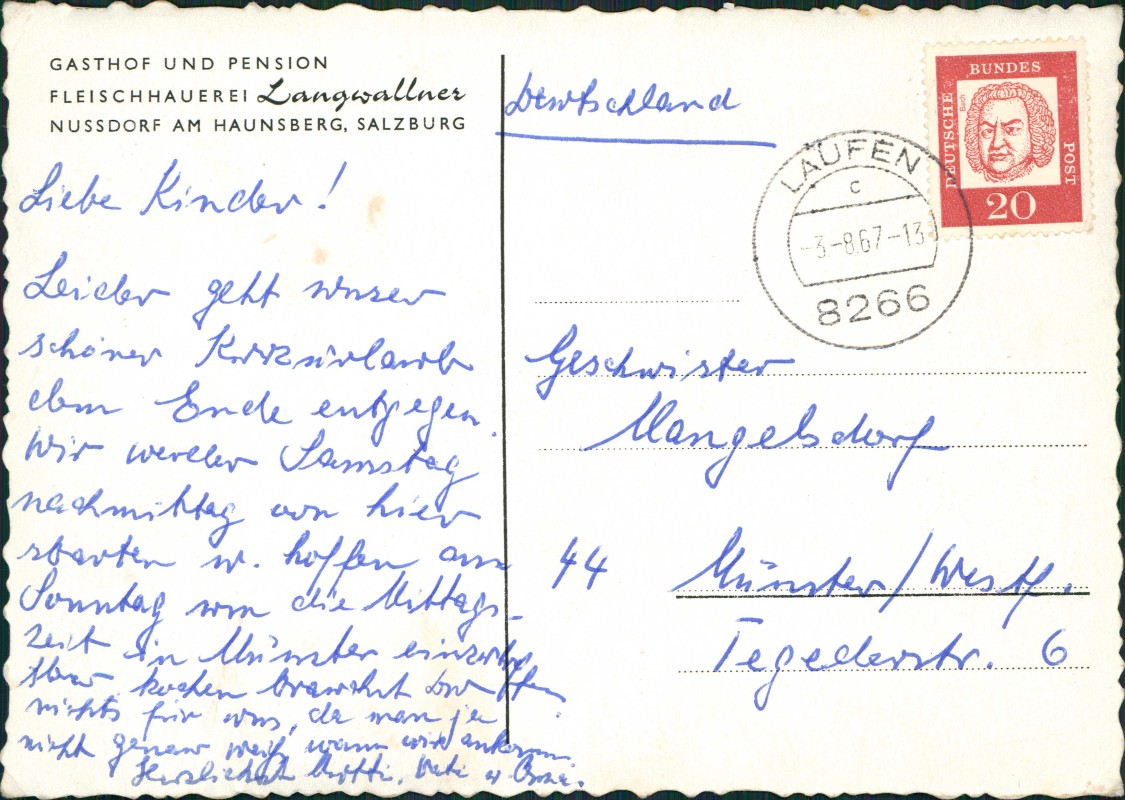 GASTHOF UND PENSION
FLEISCHHAUEREI Langwallner
NUSSDORF AM HAUNSBERG, SALZBURG
Liebe Kinder!
Leider geht unser
schöner Kurzurlaub
dem Ende entgegen.
Wir werden Samstag
nachmittag von hier
starten u. hoffen am
Sonntag um die Mittags-
zeit in Münster einzutreffen.
Aber kochen brauchst Du
nichts für uns, da man ja
nicht genau weiß, wann wir ankommen.
Herzlichst Mutti, Vati u
Deutschland
DEUTSCHE BUNDES POST
Bach
20
LAUFEN
c
-3.-8.67-13
8266
Geschwister
Mangelsdorf
44 Münster/Westf.
Tegederstr. 6